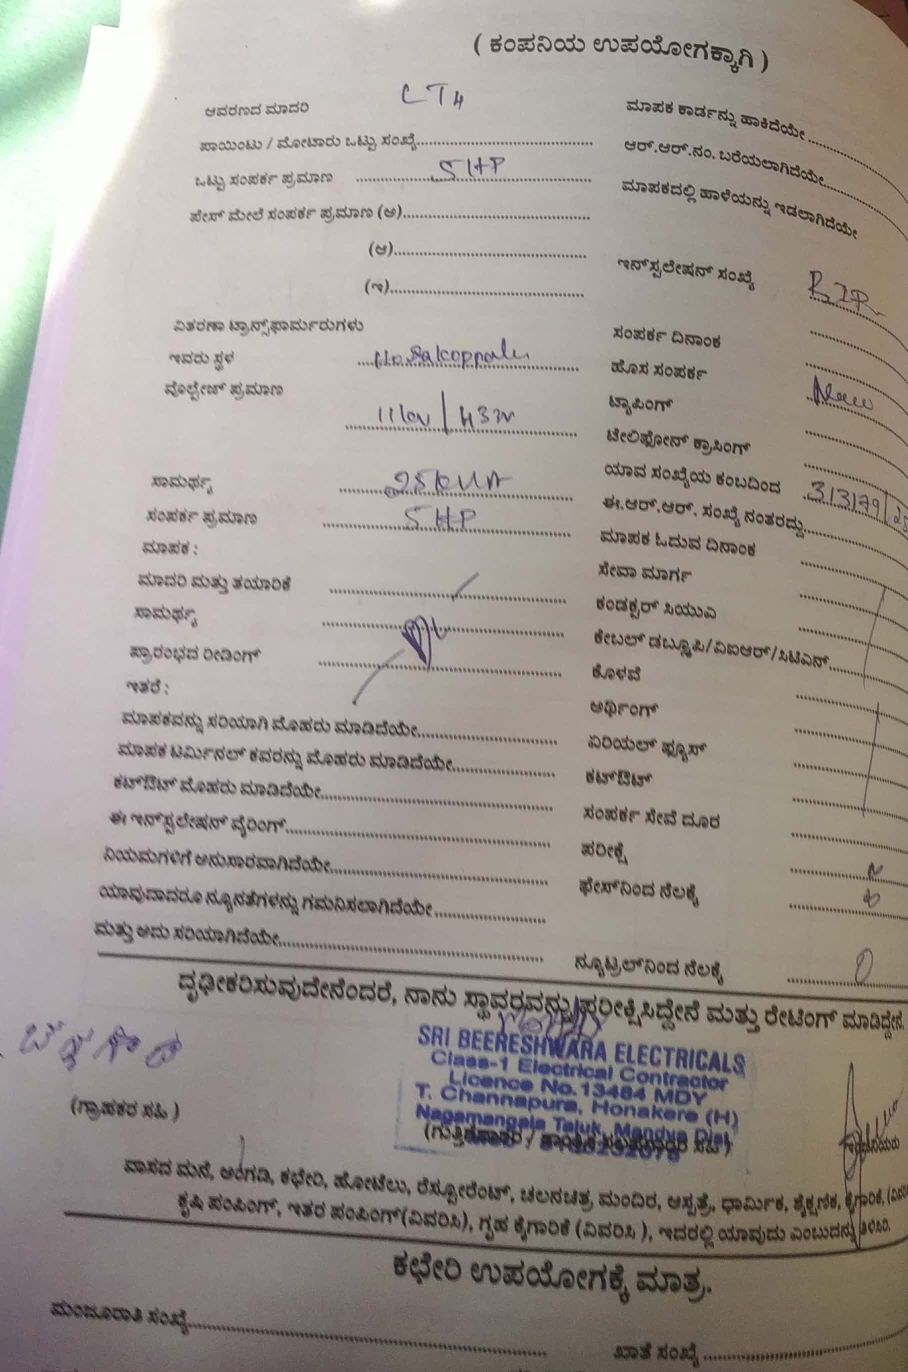 ( ಕಂಪನಿಯ ಉಪಯೋಗಕ್ಕಾಗಿ )
ಆವರಣದ ಮಾದರಿ CT4
ಪಾಯಿಂಟು / ಮೋಟಾರು ಒಟ್ಟು ಸಂಖ್ಯೆ
ಒಟ್ಟು ಸಂಪರ್ಕ ಪ್ರಮಾಣ 5HP
ಪೇಸ್ ಮೇಲೆ ಸಂಪರ್ಕ ಪ್ರಮಾಣ (ಅ)
(ಆ)
(ಇ)
ವಿತರಣಾ ಟ್ರಾನ್ಸ್‌ಫಾರ್ಮರುಗಳು
ಇವರು ಸ್ಥಳ
ವೊಲ್ಟೇಜ್ ಪ್ರಮಾಣ
ಸಾಮರ್ಥ್ಯ
ಸಂಪರ್ಕ ಪ್ರಮಾಣ 5HP
ಮಾಪಕ :
ಮಾದರಿ ಮತ್ತು ತಯಾರಿಕೆ
ಸಾಮರ್ಥ್ಯ
ಪ್ರಾರಂಭದ ರೀಡಿಂಗ್
ಇತರೆ :
ಮಾಪಕವನ್ನು ಸರಿಯಾಗಿ ಮೊಹರು ಮಾಡಿದೆಯೇ
ಮಾಪಕ ಟರ್ಮಿನಲ್ ಕವರನ್ನು ಮೊಹರು ಮಾಡಿದೆಯೇ
ಕಟ್‌ಔಟ್ ಮೊಹರು ಮಾಡಿದೆಯೇ
ಈ ಇನ್‌ಸ್ಟಲೇಷನ್ ವೈರಿಂಗ್
ನಿಯಮಗಳಿಗೆ ಅನುಸಾರವಾಗಿದೆಯೇ
ಯಾವುದಾದರೂ ನ್ಯೂನತೆಗಳನ್ನು ಗಮನಿಸಲಾಗಿದೆಯೇ
ಮತ್ತು ಅದು ಸರಿಯಾಗಿದೆಯೇ
ಮಾಪಕ ಕಾರ್ಡನ್ನು ಹಾಕಿದೆಯೇ
ಆರ್.ಆರ್.ನಂ. ಬರೆಯಲಾಗಿದೆಯೇ
ಮಾಪಕದಲ್ಲಿ ಹಾಳೆಯನ್ನು ಇಡಲಾಗಿದೆಯೇ
ಇನ್‌ಸ್ಟಲೇಷನ್ ಸಂಖ್ಯೆ
ಸಂಪರ್ಕ ದಿನಾಂಕ
ಹೊಸ ಸಂಪರ್ಕ New
ಟ್ಯಾಪಿಂಗ್
ಟೇಲಿಫೋನ್ ಕ್ರಾಸಿಂಗ್
ಯಾವ ಸಂಖ್ಯೆಯ ಕಂಬದಿಂದ
ಈ.ಆರ್.ಆರ್. ಸಂಖ್ಯೆ ನಂತರದ್ದು
ಮಾಪಕ ಓದುವ ದಿನಾಂಕ
ಸೇವಾ ಮಾರ್ಗ
ಕಂಡಕ್ಟರ್ ಸಿಯುಎ
ಕೇಬಲ್ ಡಬ್ಲ್ಯೂಪಿ/ವಿಐಆರ್/ಸಿಟಿಎಸ್
ಕೊಳವೆ
ಅರ್ಥಿಂಗ್
ಏರಿಯಲ್ ಫ್ಯೂಸ್
ಕಟ್‌ಔಟ್
ಸಂಪರ್ಕ ಸೇವೆ ದೂರ
ಪರೀಕ್ಷೆ
ಫೇಸ್‌ನಿಂದ ನೆಲಕ್ಕೆ
ನ್ಯೂಟ್ರಲ್‌ನಿಂದ ನೆಲಕ್ಕೆ
ದೃಢೀಕರಿಸುವುದೇನೆಂದರೆ, ನಾನು ಸ್ಥಾವರವನ್ನು ಪರೀಕ್ಷಿಸಿದ್ದೇನೆ ಮತ್ತು ರೇಟಿಂಗ್ ಮಾಡಿದ್ದೇನೆ.
SRI BEERESHWARA ELECTRICALS
Class-1 Electrical Contractor
Licence No.13484 MDY
T. Channapura, Honakere (H)
Nagamangala Taluk, Mandya Dist
(ಗ್ರಾಹಕರ ಸಹಿ )
ವಾಸದ ಮನೆ, ಅಂಗಡಿ, ಕಛೇರಿ, ಹೋಟೆಲು, ರೆಸ್ಟೋರೆಂಟ್, ಚಲನಚಿತ್ರ ಮಂದಿರ, ಆಸ್ಪತ್ರೆ, ಧಾರ್ಮಿಕ, ಶೈಕ್ಷಣಿಕ, ಕೈಗಾರಿಕೆ,
ಕೃಷಿ ಪಂಪಿಂಗ್, ಇತರ ಪಂಪಿಂಗ್(ವಿವರಿಸಿ), ಗೃಹ ಕೈಗಾರಿಕೆ (ವಿವರಿಸಿ ), ಇದರಲ್ಲಿ ಯಾವುದು ಎಂಬುದನ್ನು ತಿಳಿಸಿರಿ.
ಕಛೇರಿ ಉಪಯೋಗಕ್ಕೆ ಮಾತ್ರ.
ಮಂಜೂರಾತಿ ಸಂಖ್ಯೆ
ಖಾತೆ ಸಂಖ್ಯೆ